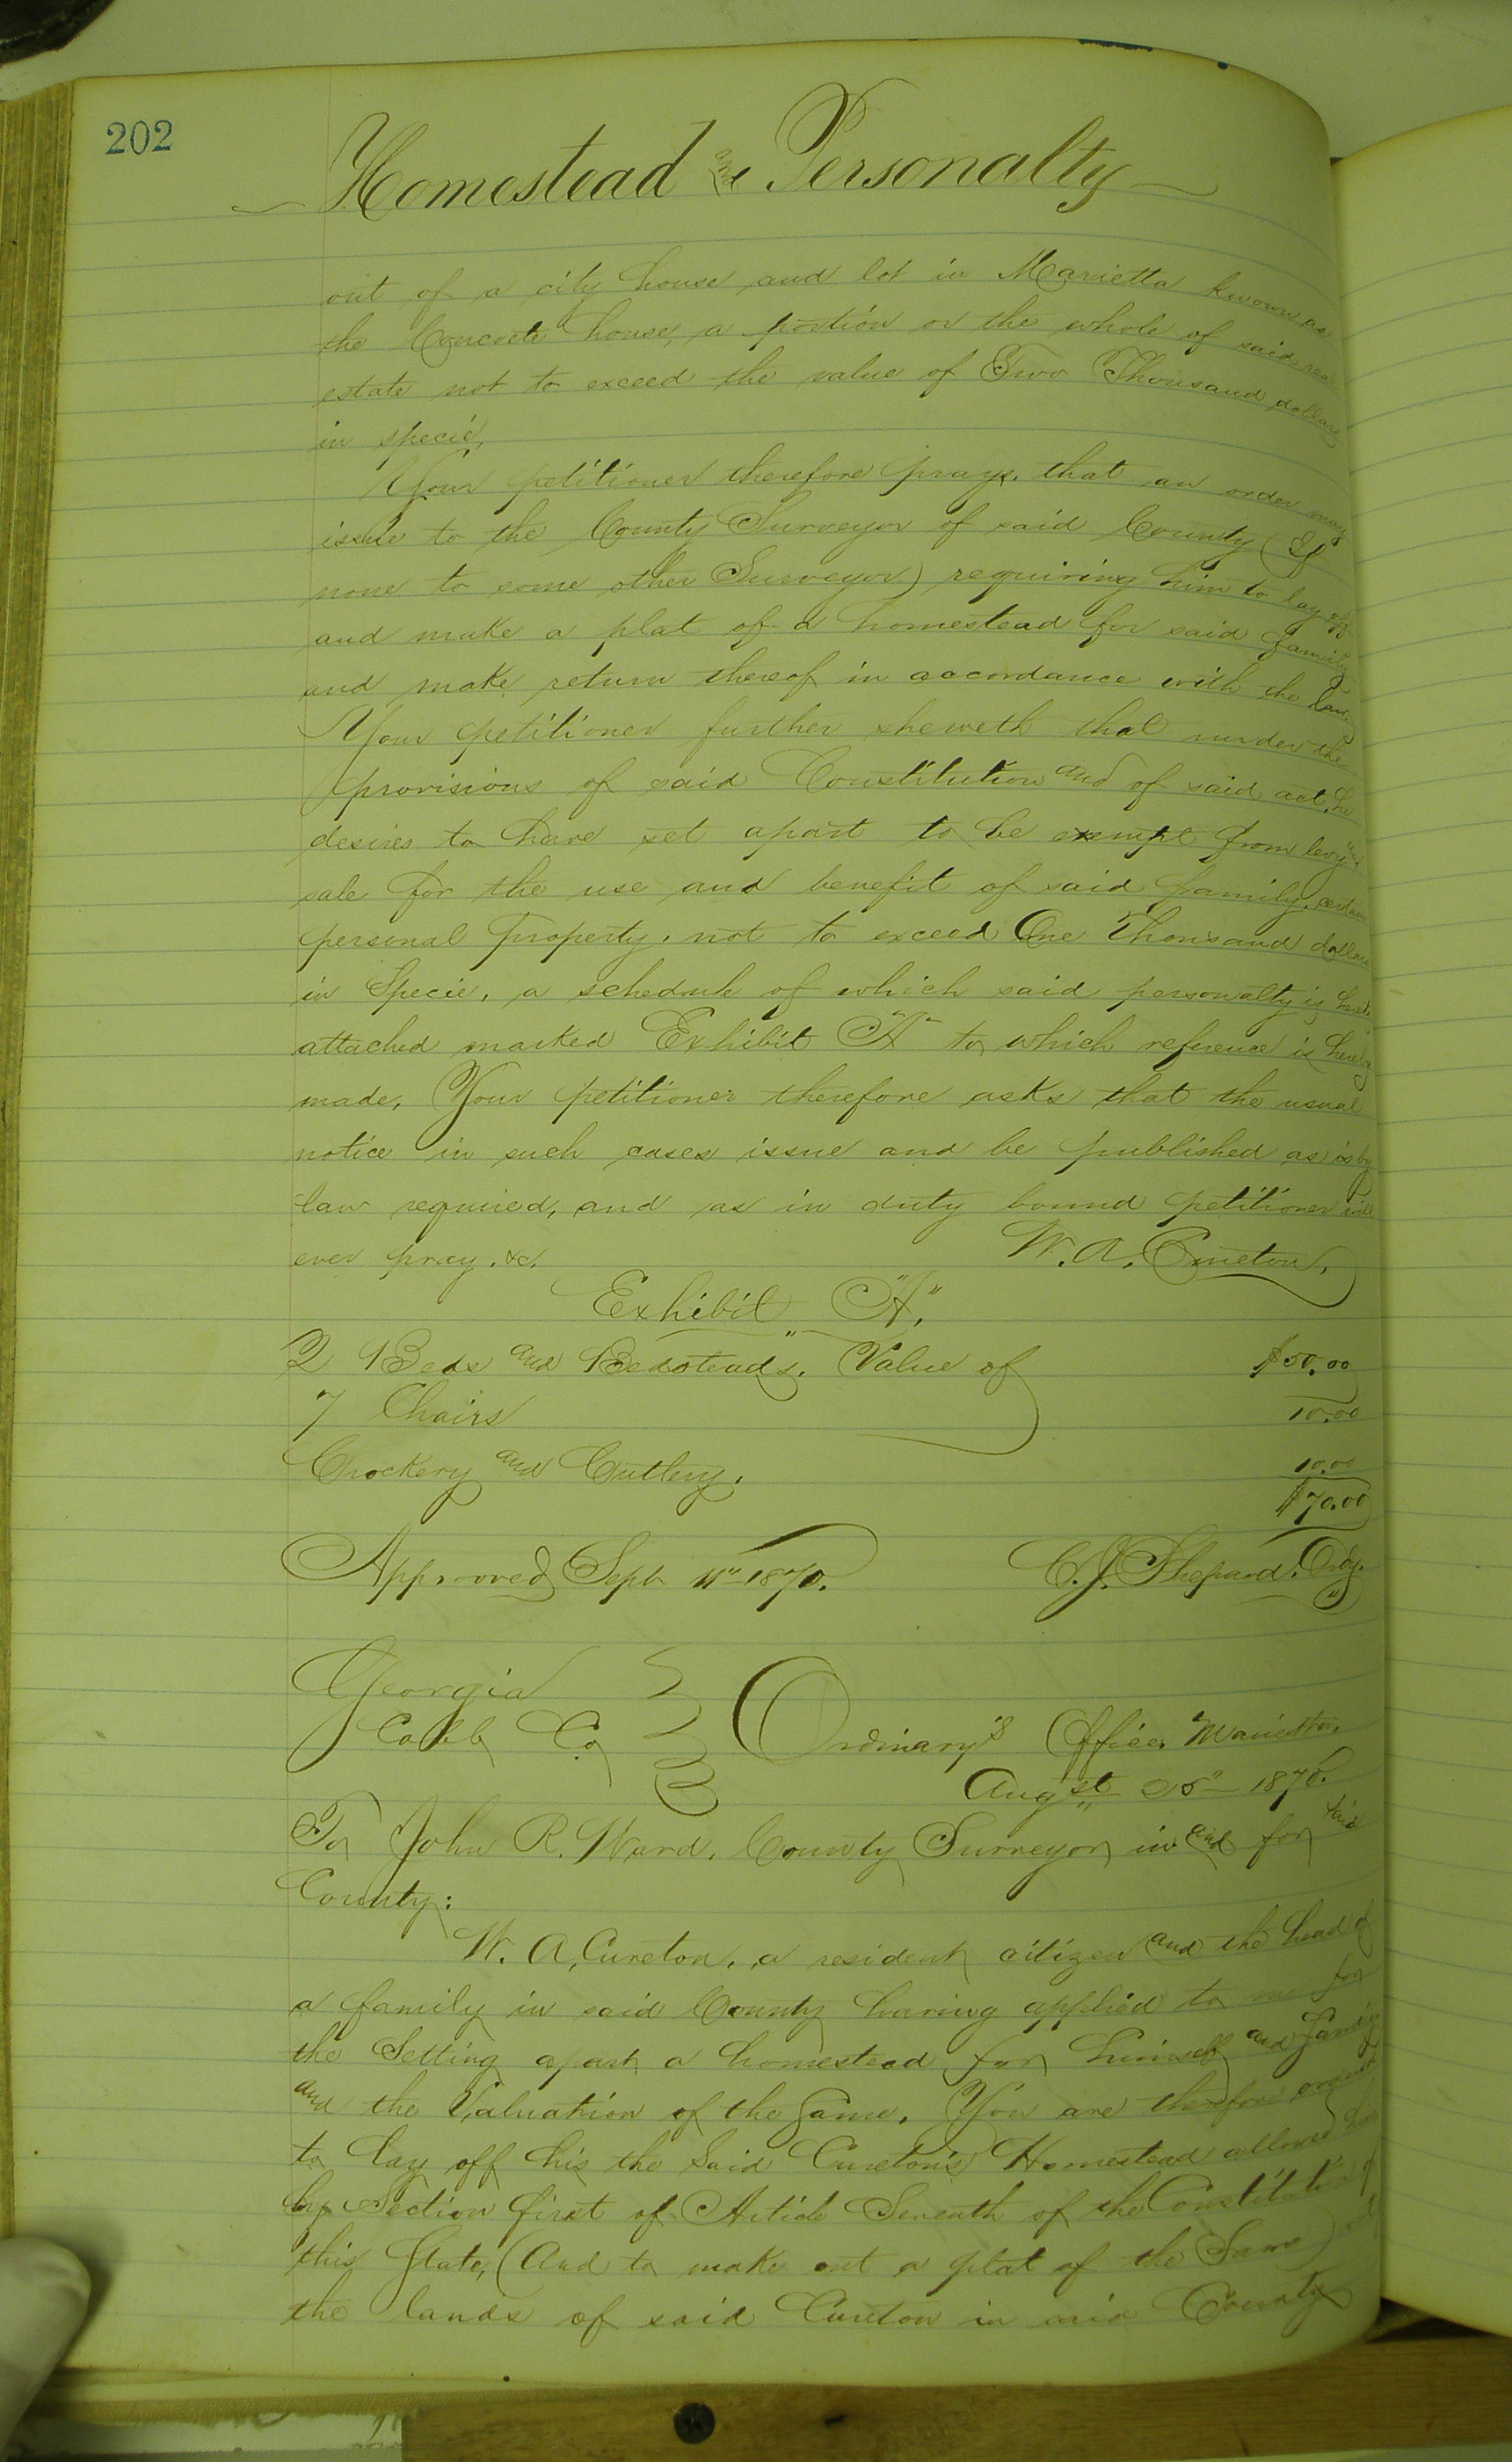 202
Homestead and Personalty
out of a city house and lot in Marietta known as
the Concrete house, a portion or the whole of said real
estate not to exceed the value of Two Thousand dollars
in specie,
Your petitioner therefore prays, that an order may
issue to the County Surveyor of said County (If
none to some other Surveyor) requiring him to lay off
and make a plat of a homestead for said family
and make return thereof in accordance with the law.
Your petitioner further sheweth that under the
provisions of said Constitution and of said act, he
desires to have set apart to be exempt from levy and
sale for the use and benefit of said family, certain
personal Property, not to exceed One Thousand dollars
in Specie, a schedule of which said personalty is hereto
attached marked Exhibit "A" to which reference is hereby
made, Your petitioner therefore asks that the usual
notice in such cases issue and be published as is by
law required, and as in duty bound petitioner will
ever pray, &c. W. A. Cureton,
Exhibit "A",
2 Beds and Bedsteads, Value of $50.00
7 Chairs 10.00
Crockery and Cutlery, 10.00
$70.00
Approved Sept 11" 1870. C. J. Shepard, Ordy.
Georgia
Cobb Co Ordinary's Office, Marietta,
Augst 25" 1870.
To John R. Ward, County Surveyor in and for said
County:
W. A, Cureton, a resident citizen and the head of
a family in said County having applied to me for
the Setting apart a homestead for himself and family
and the Valuation of the Same, You are therefore
to lay off his the Said Cureton's Homestead allowed him
by Section first of Article Seventh of the Constitution of
this State, (And to make out a plat of the Same)
the lands of said Cureton in said County